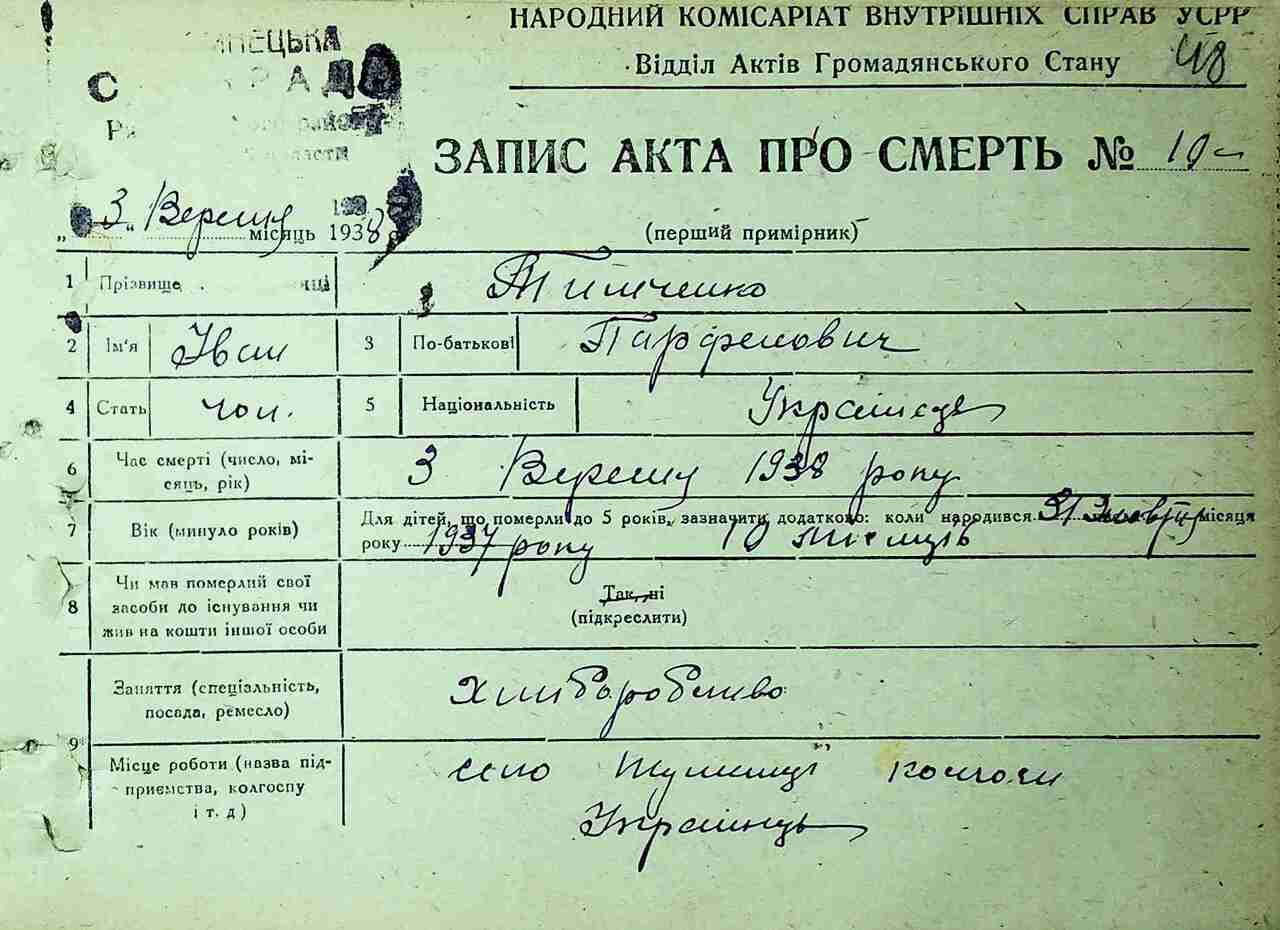 НАРОДНИЙ КОМІСАРІАТ ВНУТРІШНІХ СПРАВ УСРР
Відділ Актів Громадянського Стану
48
ЗАПИС АКТА ПРО СМЕРТЬ № 10
"3" Вересня місяць 1938 р
(перший примірник)
1 Прізвище
2 Ім'я Іван 3 По-батькові Парфенович
4 Стать чол. 5 Національність Українець
6 Час смерті (число, мі-
сяць, рік) 3 Вересня 1938 року
7 Вік (минуло років) Для дітей, що померли до 5 років, зазначити додатково: коли народився 31 Жовтня місяця
року 1937 року 10 місяців
8 Чи мав померлий свої
засоби до існування чи
жив на кошти іншої особи
Так, ні
(підкреслити)
9 Заняття (спеціальність,
посада, ремесло) Хліборобство
Місце роботи (назва під-
приємства, колгоспу
і т. д.)
село